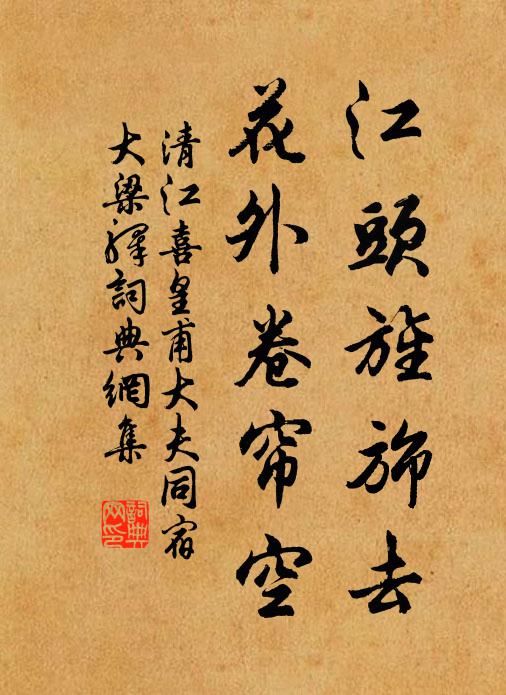 江頭旌旆去
花外卷帘空
清江喜皇甫大夫同宿
大梁驛詞典網集
詞典
网印